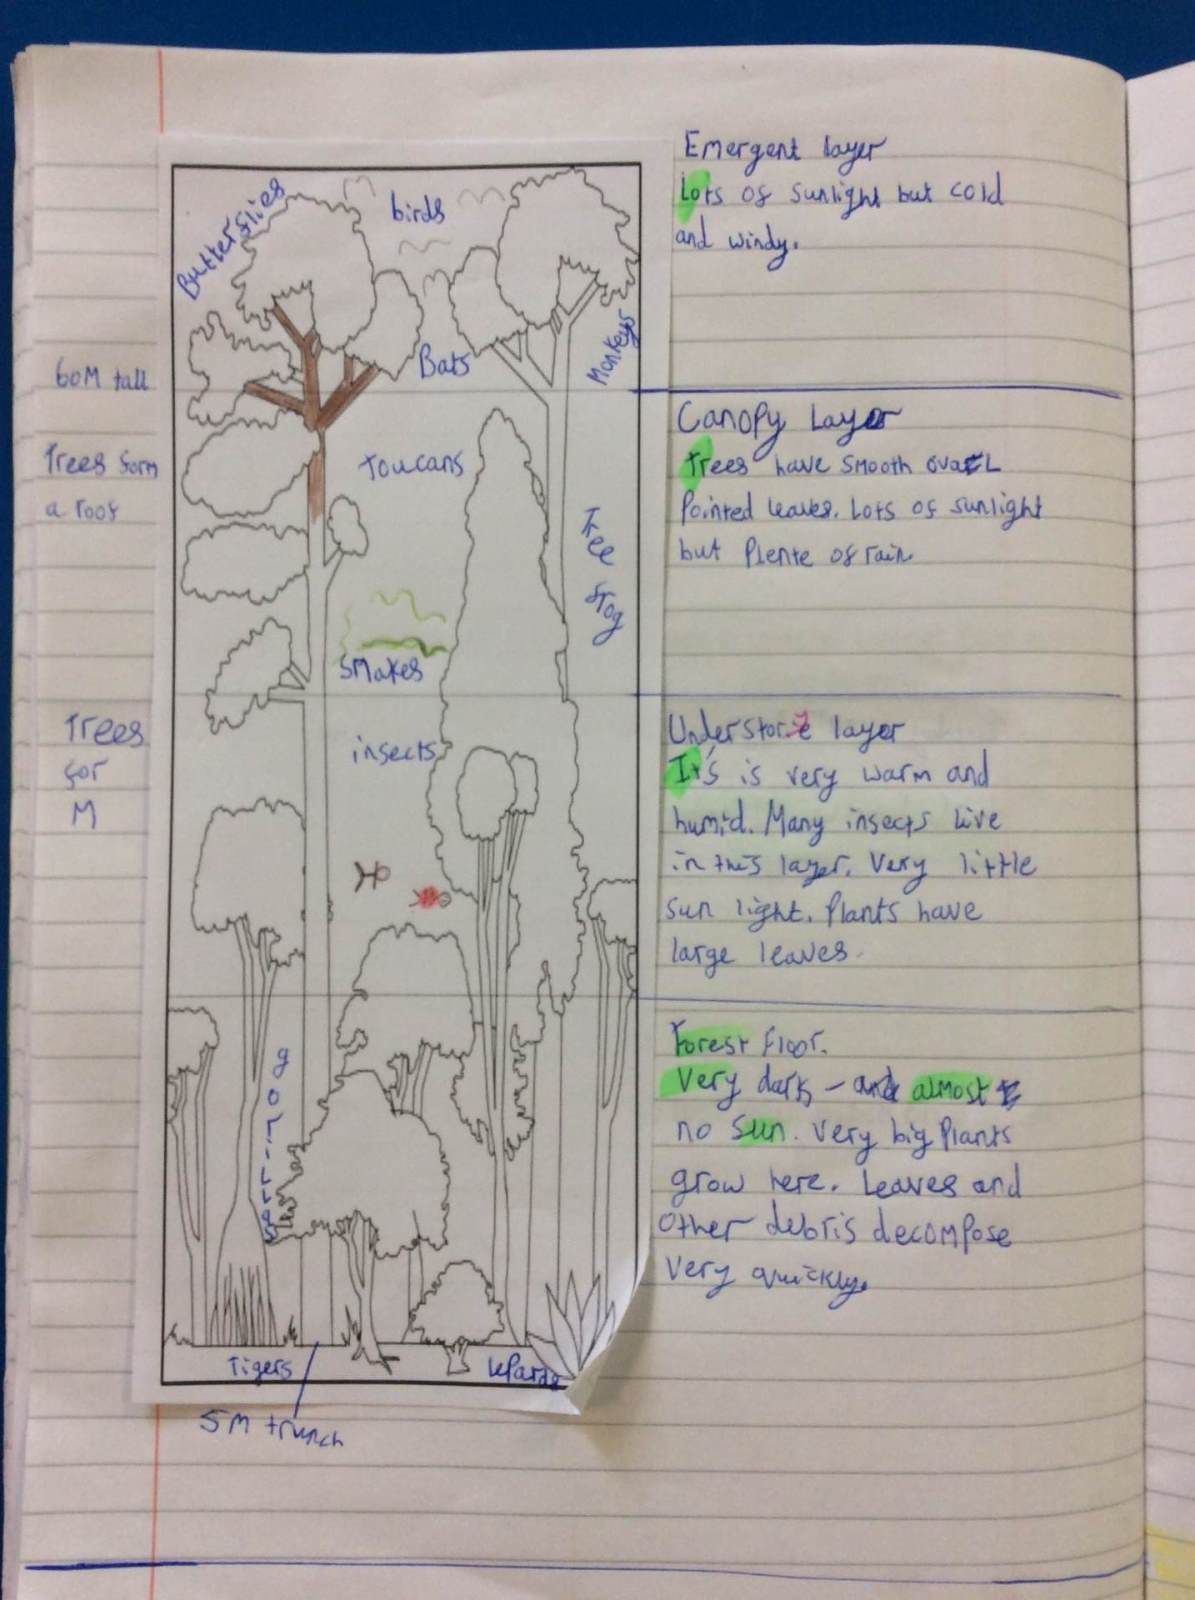 Emergent layer
Lots of sunlight but cold
and windy.
Butterflies
birds
Bats
Monkeys
60M tall
Canopy Layer
Trees have smooth oval
Pointed leaves. Lots of sunlight
but Plente of rain
Trees form
a roof
Toucans
Tree frog
SMakes
Understory layer
It's is very warm and
humid. Many insects live
in this layer. Very little
sun light. Plants have
large leaves.
Trees
for
M
insects
Forest Floor.
Very dark - and almost
no sun. Very big Plants
grow here. Leaves and
Other debris decompose
Very quickly.
gorillas
Tigers
lepards
5M trunch